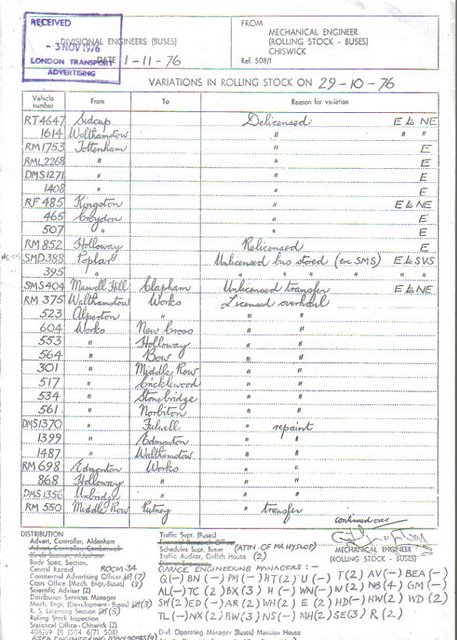 RECEIVED
- 3 NOV 1976
LONDON TRANSPORT
ADVERTISING
DIVISIONAL ENGINEERS (BUSES)
DATE 1-11-76
FROM
MECHANICAL ENGINEER
(ROLLING STOCK - BUSES)
CHISWICK
Ref. 508/1
VARIATIONS IN ROLLING STOCK ON 29-10-76
Vehicle number From To Reason for variation
RT4647 Sidcup Delicensed E to NE
1614 Walthamstow " " "
RM1753 Tottenham " E
RML2268 " " E
DMS1271 " " E
1408 " " E
RF 485 Kingston " E to NE
465 Croydon " E
507 " " E
RM 852 Holloway Relicensed E
SMD388 Poplar Unlicensed bus stored (ex SMS) E to SVS
395 " " " " " " "
SMS404 Muswell Hill Clapham Unlicensed transfer E to NE
RM 375 Walthamstow Works Licensed overhaul
523 Alperton " " "
604 Works New Cross " "
553 " Holloway " "
564 " Bow " "
301 " Middle Row " "
517 " Cricklewood " "
534 " Stonebridge " "
561 " Norbiton " "
DMS1370 " Fulwell " repaint
1399 " Edmonton " "
1487 " Walthamstow " "
RM 698 Edmonton Works " "
868 Holloway " " "
DMS1356 Uxbridge " " "
RM 550 Middle Row Putney " transfer
continued over
MECHANICAL ENGINEER
(ROLLING STOCK - BUSES)
DISTRIBUTION
Advert, Controller, Aldenham
Advert, Controller, Camberwell
Body Spec. Section,
Central Record ROOM 34
Commercial Advertising Officer (7)
Costs Office (Mech. Engr. Buses) (2)
Scientific Adviser (2)
Distribution Services Manager
Mech. Engr. (Development - Buses) (3)
R. S. Licensing Section (5)
Rolling Stock Inspection
Statistical Office - Chiswick (2)
Traffic Supt. (Buses)
Schedules Supt. Buses (ATTN. OF MR HYSLOP)
Traffic Auditor, Griffith House (2)
GARAGE ENGINEERING MANAGERS :-
Q(-) BN(-) PM(-) HT(2) U(-) T(2) AV(-) BEA(-)
AL(-) TC(2) BX(3) H(-) WN(-) W(2) NB(4) GM(-)
SW(2) ED(-) AR(2) WH(2) E(2) HD(-) HW(2) WD(2)
TL(-) NX(2) BW(3) NS(-) NH(2) SE(3) R(2)
Div. Operating Manager (Buses) Mansion House